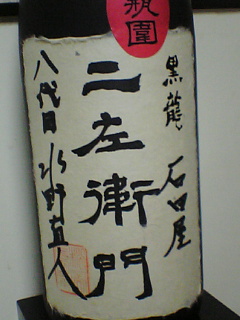 瓶囲
黒龍 石田屋
二左衛門
八代目 水野直人